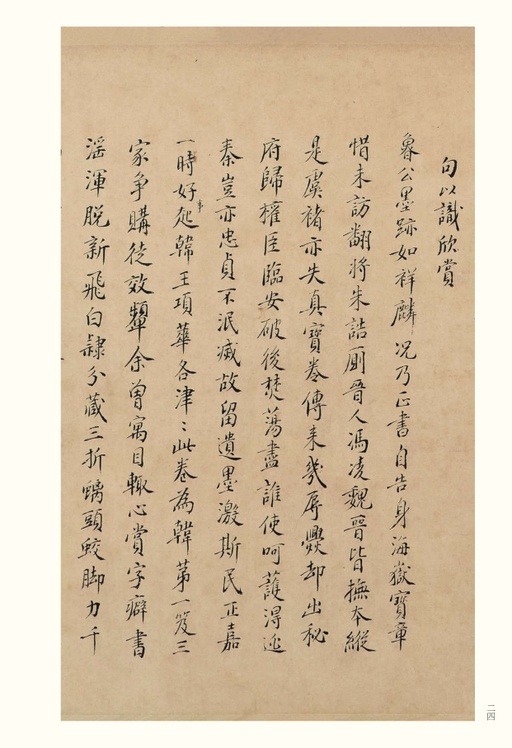 句以識欣賞
魯公墨跡如祥麟况乃正書自告身海嶽寶章
惜未訪翻將朱誥厠晉人馮凌魏晉皆撫本縱
是虞褚亦失真寶卷傳来幾辱爨却出秘
府歸權臣臨安破後焚蕩盡誰使呵護淂延
秦豈亦忠貞不泯滅故留遺墨激斯民正嘉
一時好事起韓王項華各津〻此卷為韓第一笈三
家争購徒效顰余曽寓目輙心賞字癖書
滛渾脱新飛白隷分藏三折螭頭蛟脚力千
二四